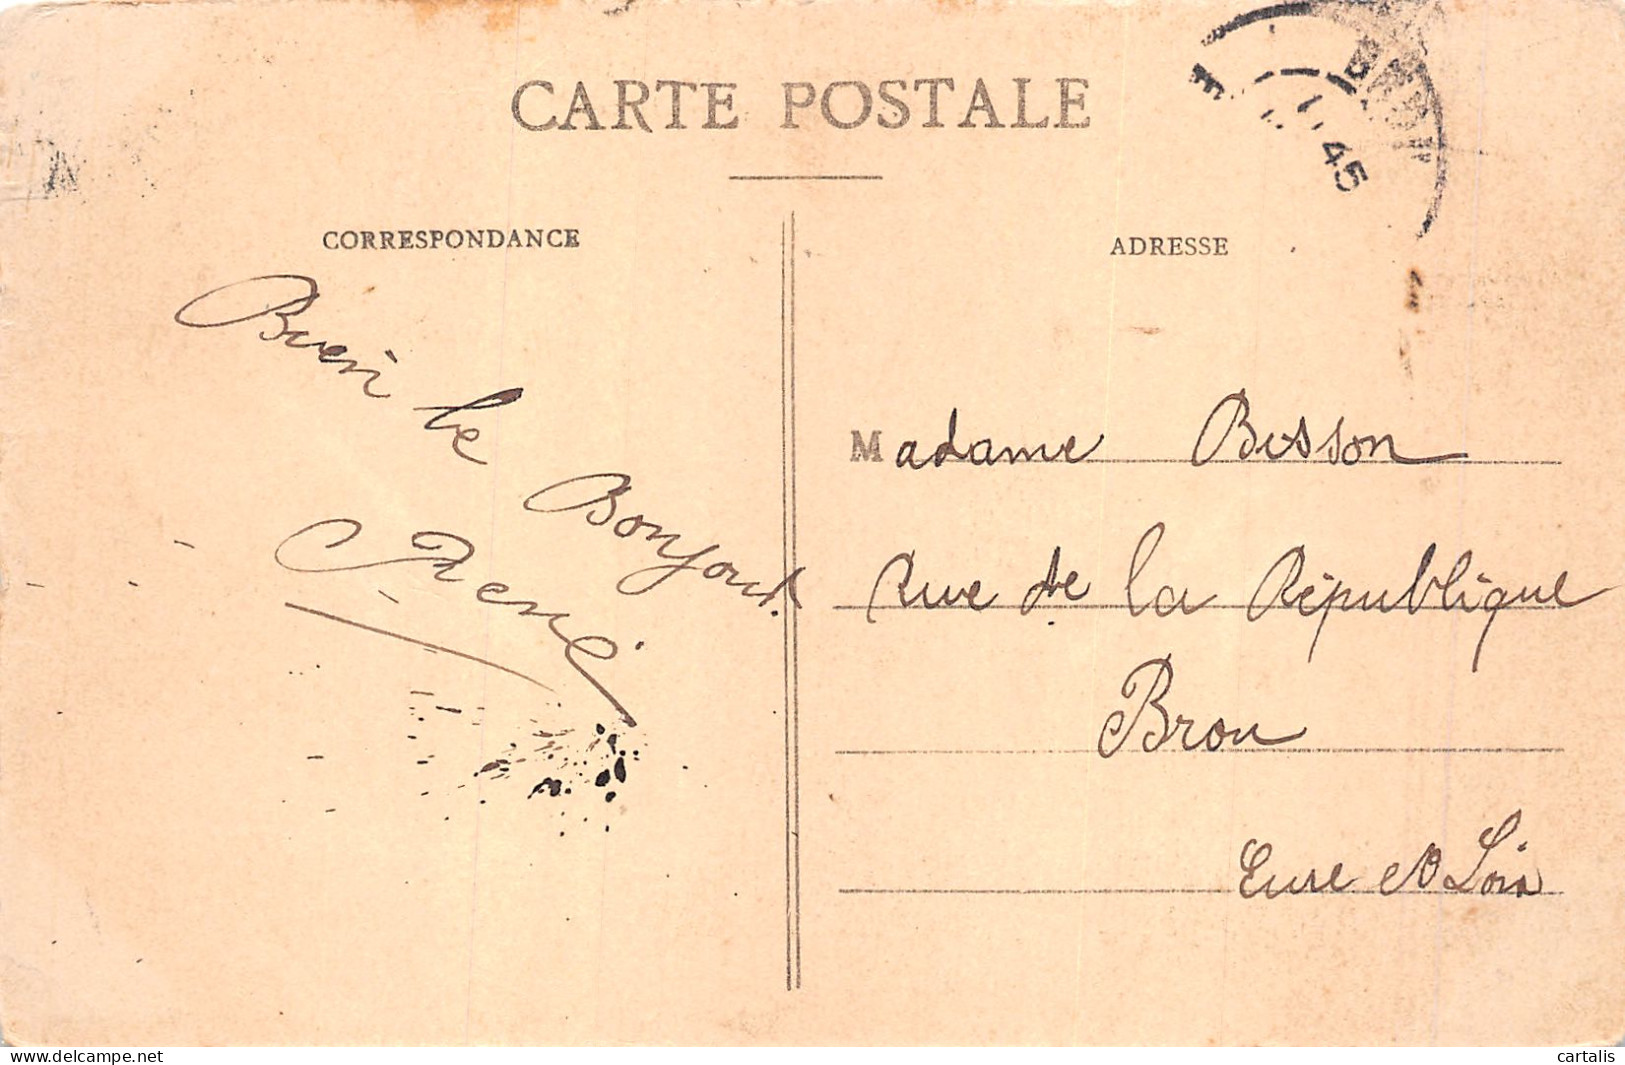 CARTE POSTALE
45
CORRESPONDANCE
Bien le
Bonjour
René
ADRESSE
Madame Bisson
Rue de la République
Brou
Eure et Loir
www.delcampe.net
cartalis